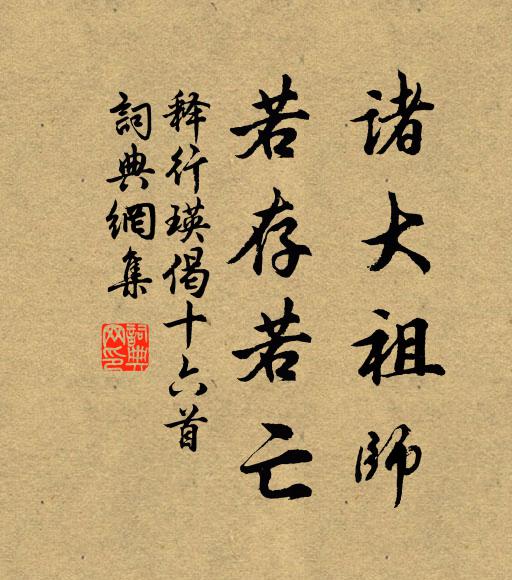 諸大祖師
若存若亡
释行瑛偈十六首
詞典網集
詞典
网印